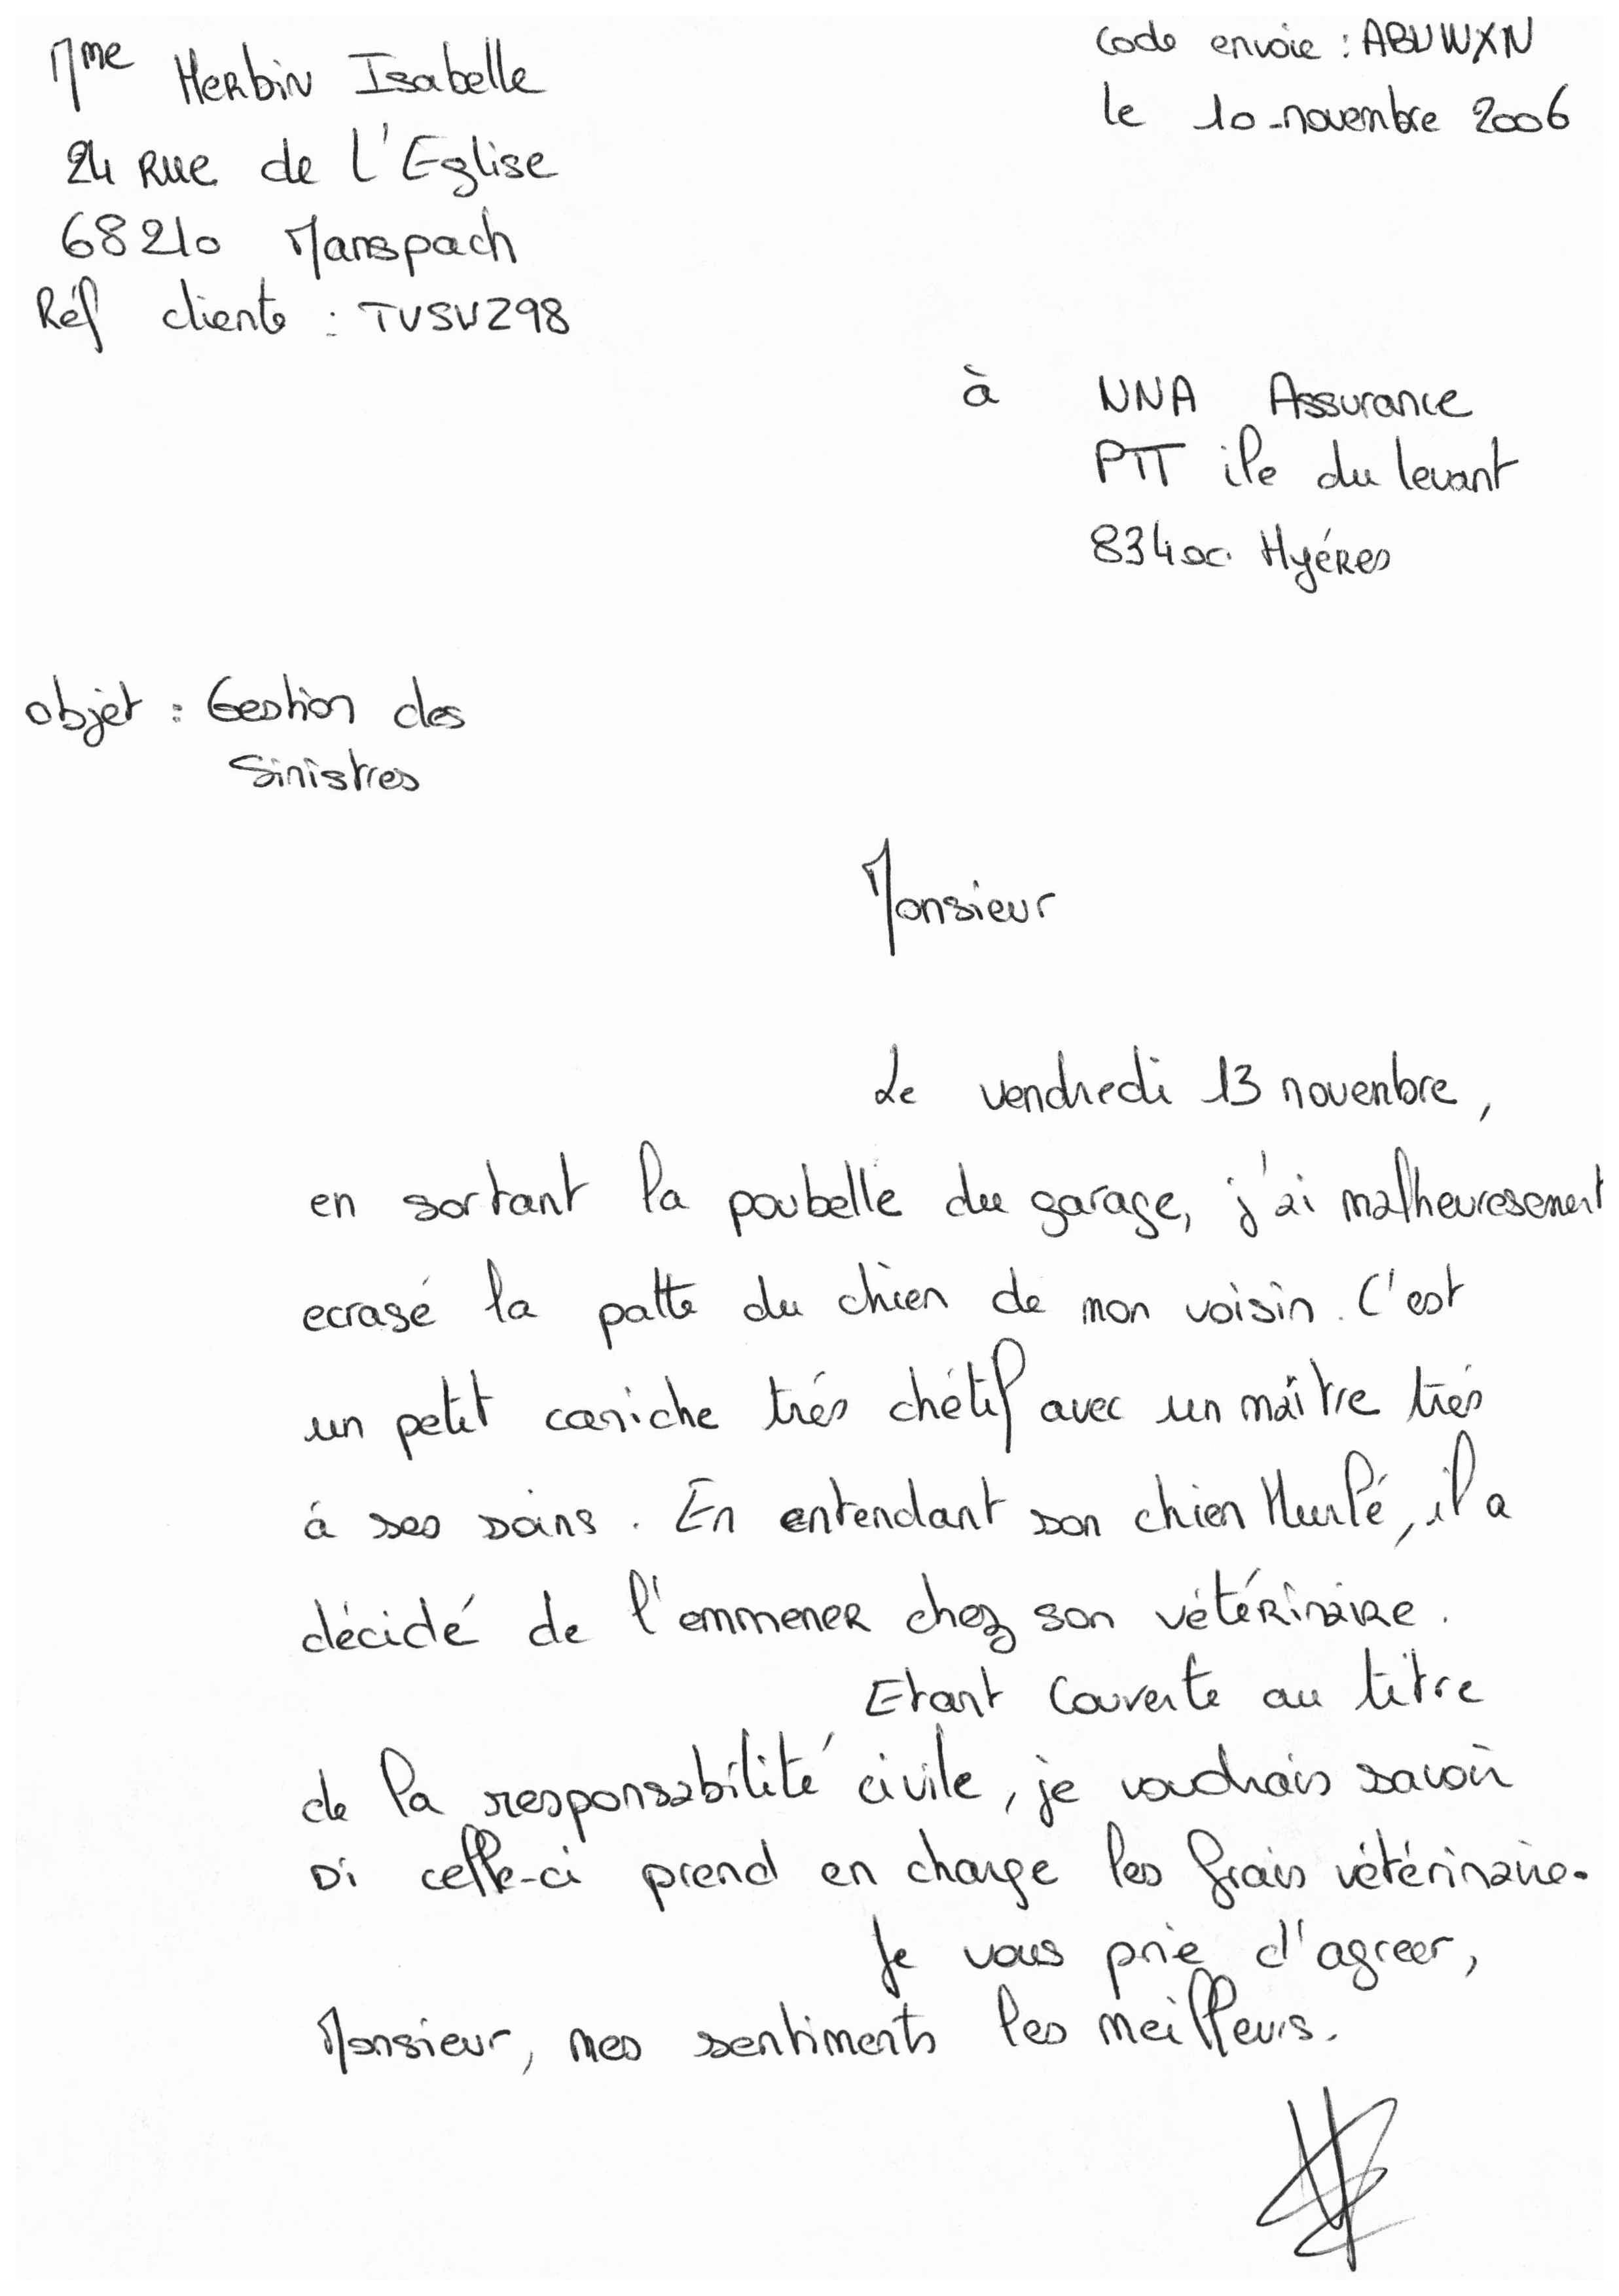 Mme Herbin Isabelle
24 Rue de l'Eglise
68210 Manspach
Réf cliente : TVSVZ98
Code envoie : ABUWXN
le 10 novembre 2006
à NNA Assurance
PTT ile du levant
83400 Hyéres
objet : Gestion des
Sinistres
Monsieur
Le vendredi 13 novembre,
en sortant la poubelle du garage, j'ai malheuresement
ecrasé la patte du chien de mon voisin. C'est
un petit caniche trés chétif avec un maître trés
à ses soins. En entendant son chien Hurlé, il a
décidé de l'emmener chez son vétérinaire.
Etant couverte au titre
de la responsabilité civile, je voudrais savoir
si celle-ci prend en charge les frais vétérinaire.
Je vous prie d'agreer,
Monsieur, mes sentiments les meilleurs.